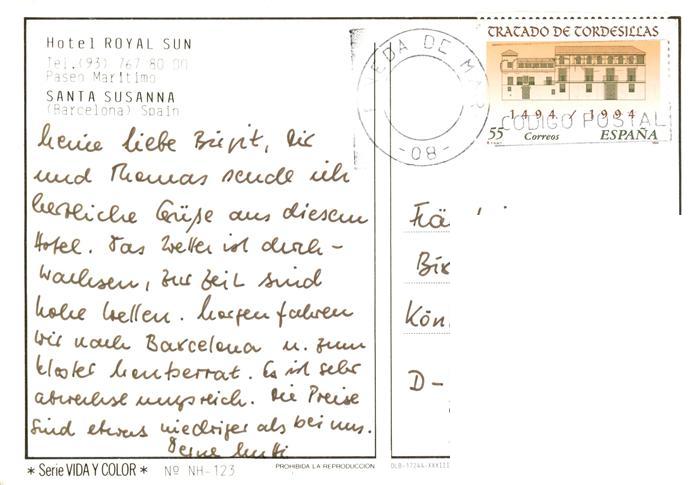 Hotel ROYAL SUN
Tel.(93) 767 80 00
Paseo Maritimo
SANTA SUSANNA
(Barcelona) Spain
Meine liebe Birgit, Dir
und Thomas sende ich
herzliche Grüße aus diesem
Hotel. Das Wetter ist durch-
wachsen, zur Zeit sind
hohe Wellen. Morgen fahren
wir nach Barcelona u. zum
Kloster Montserrat. Es ist sehr
abwechslungsreich. Die Preise
sind etwas niedriger als bei uns.
Deine Mutti
* Serie VIDA Y COLOR * Nº NH-123
PROHIBIDA LA REPRODUCCIÓN
DE MAR
-08-
TRATADO DE TORDESILLAS
1494 / 1994
CODIGO POSTAL
55 Correos ESPAÑA
Frä
Bir
Kön
D-
DLB-17244-XXXIII